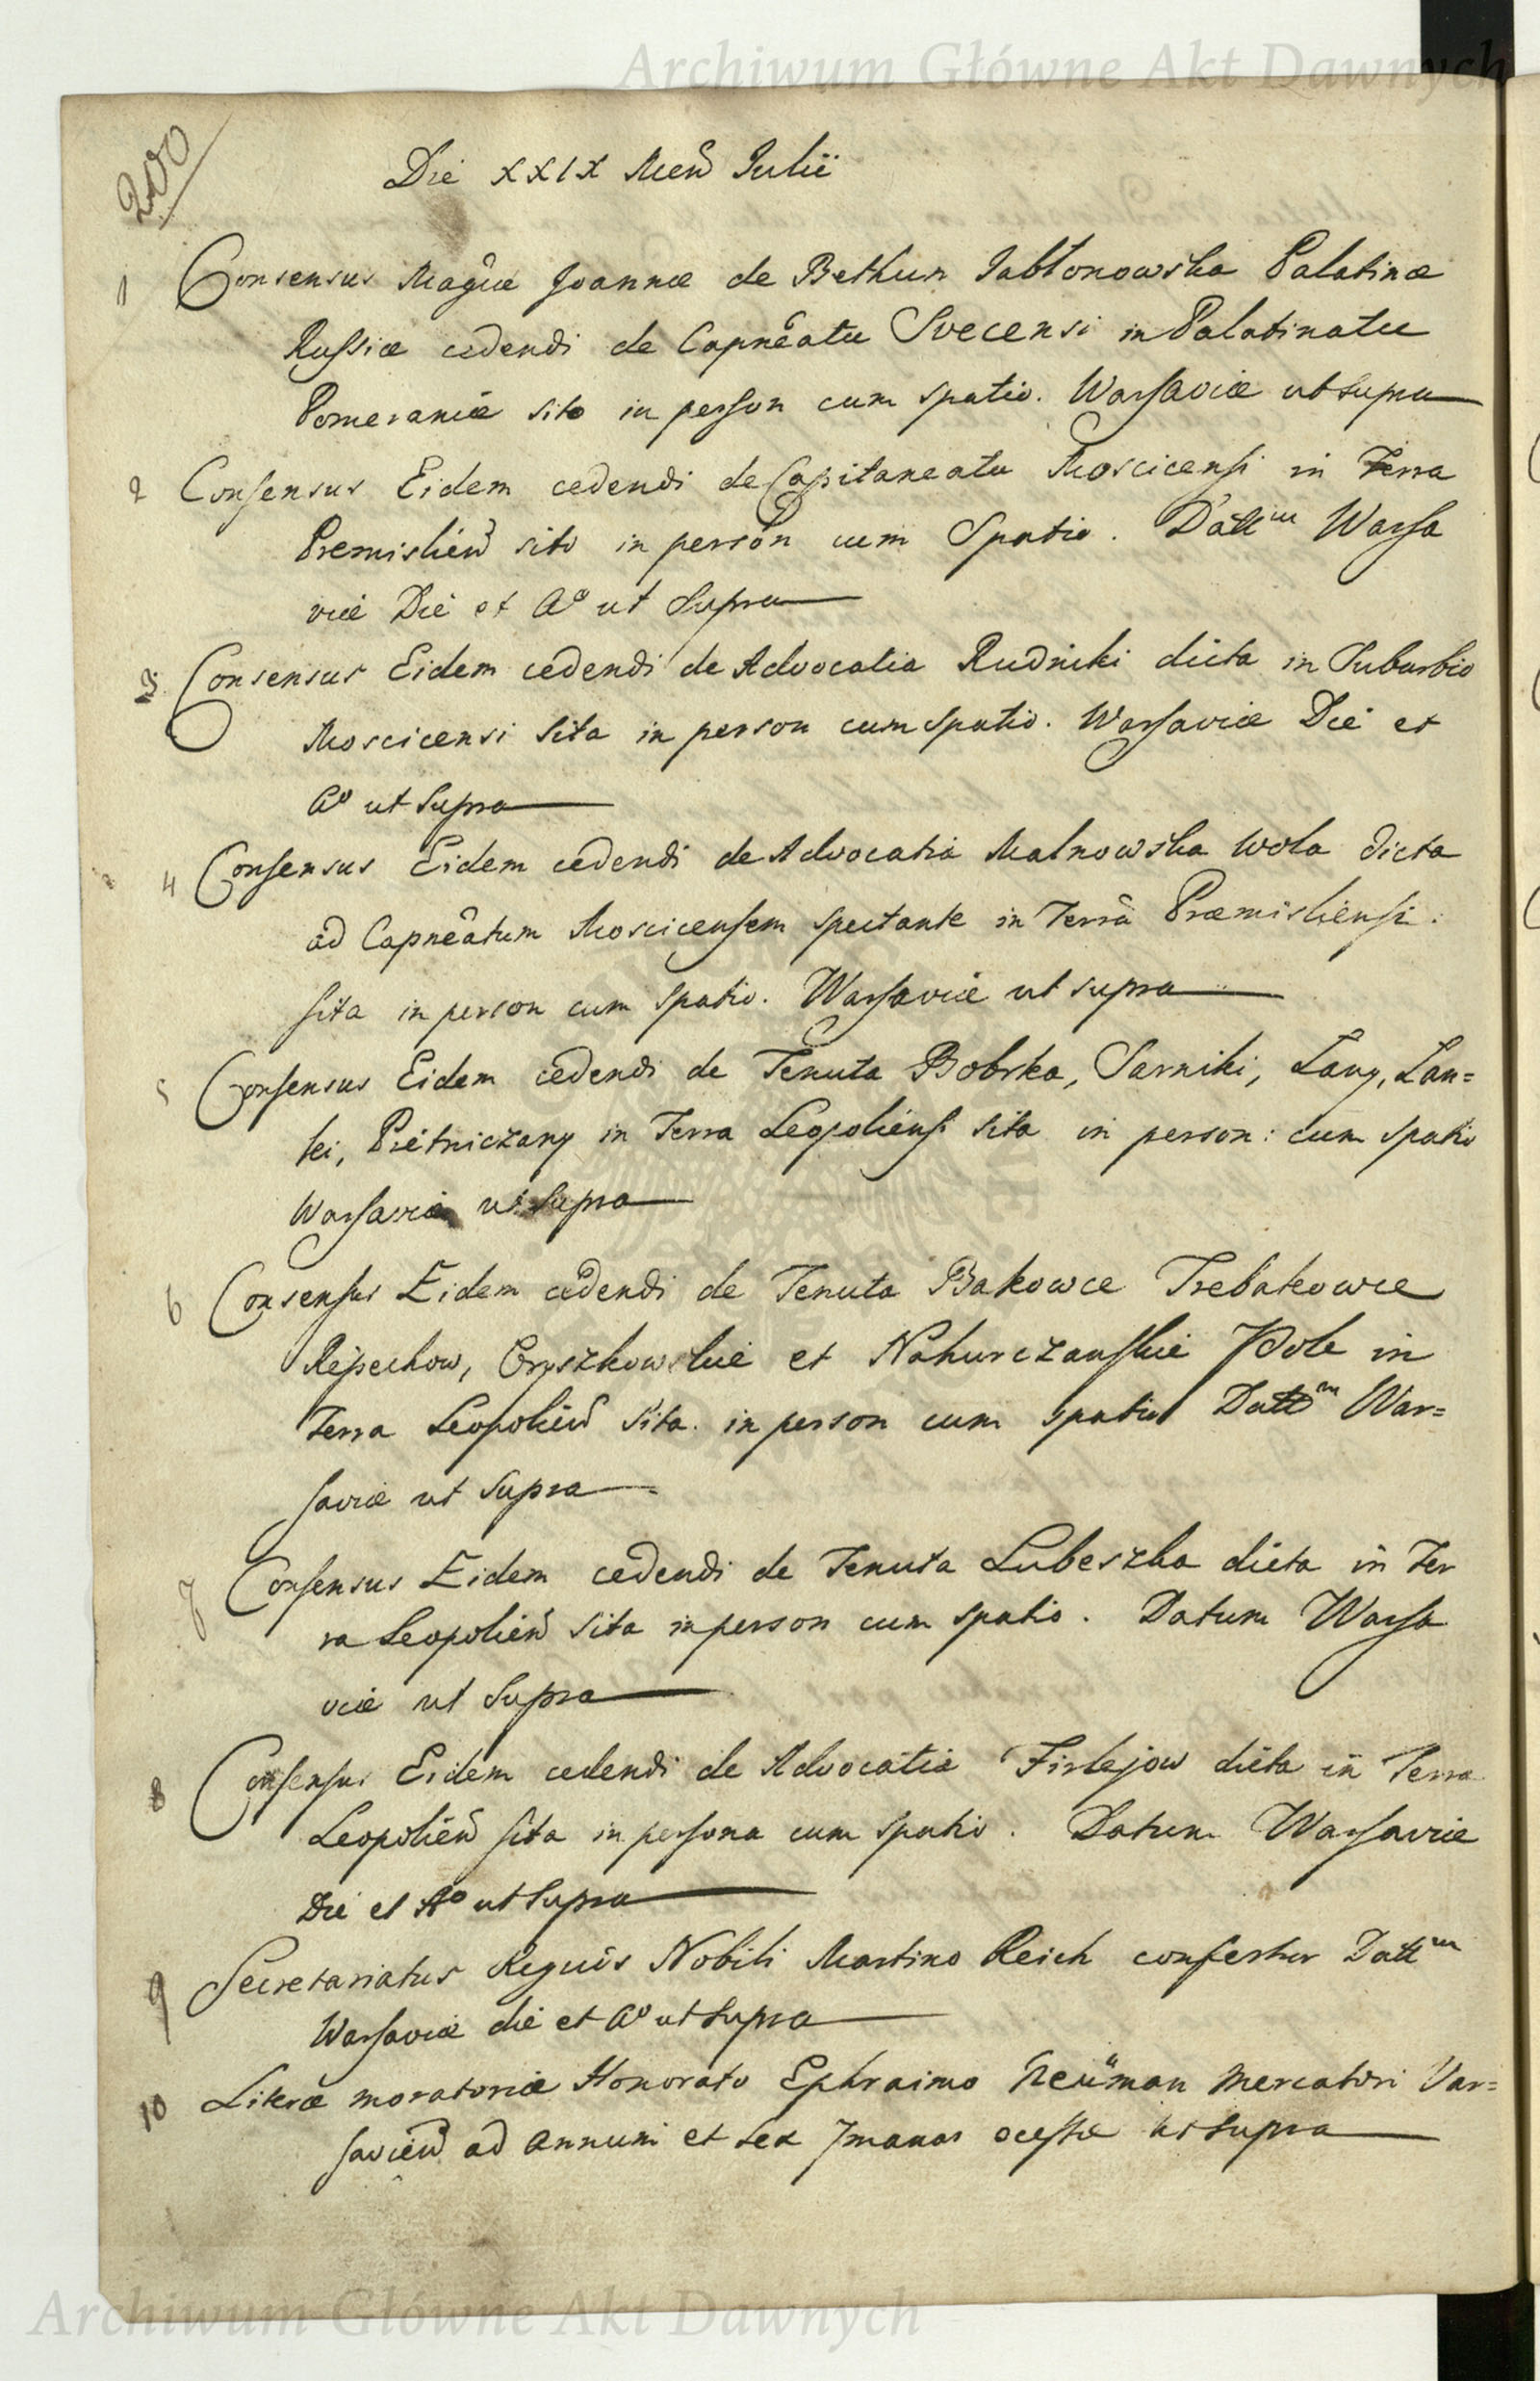 Archiwum Główne Akt Dawnych
200
Die XXIX Men̄ Julii
1 Consensus Magn̂æ Joannæ de Bethun Jabłonowska Palatinæ
Russiæ cedendi de Capnêatu Svecensi in Palatinatu
Pomeraniæ sito in person cum spatio. Warsaviæ ut supra
2 Consensus Eidem cedendi de Capitaneatu Moscicensi in Terra
Premislien̄ sito in person cum Spatio. Datt͞ᵐ Warsa
viæ Die et Aº ut Supra
3 Consensus Eidem cedendi de Advocatia Rudniki dicta in Suburbio
Moscicensi Sita in person cum spatio. Warsaviæ Die et
Aº ut Supra
4 Consensus Eidem cedendi de Advocatia Malnowska Wola dicta
ad Capnêatum Moscicensem spectante in Terrâ Præmisliensi.
sita in person cum spatio. Warsaviæ ut supra
5 Consensus Eidem cedendi de Tenuta Bobrka, Sarniki, Łany, Lan=
ki, Pietniczany in Terra Leopoliensi sita in person: cum spatio
Warsaviæ ut Supra
6 Consensus Eidem cedendi de Tenuta Bakowce Trebakowce
Repechow, Oryszkowskie et Nahurczanskie Pole in
Terra Leopolien̄ Sita. in person cum spatio Datt͞ᵐ War=
saviæ ut Supra
7 Consensus Eidem cedendi de Tenuta Lubeszka dicta in Ter
ra Leopolien̄ Sita in person cum spatio. Datum Warsa
viæ ut Supra
8 Consensus Eidem cedendi de Advocatia Firlejow dicta in Terra
Leopolien̄ sita in persona cum spatio. Datum Warsaviæ
Die et Aº ut Supra
9 Secretariatus Regius Nobili Martino Reich confertur Datt͞ᵐ
Warsaviæ die et Aº ut Supra
10 Literæ moratoriæ Honorato Ephraimo Neüman Mercatori Var=
savien̄ ad Annum et sex ut supra
Archiwum Główne Akt Dawnych